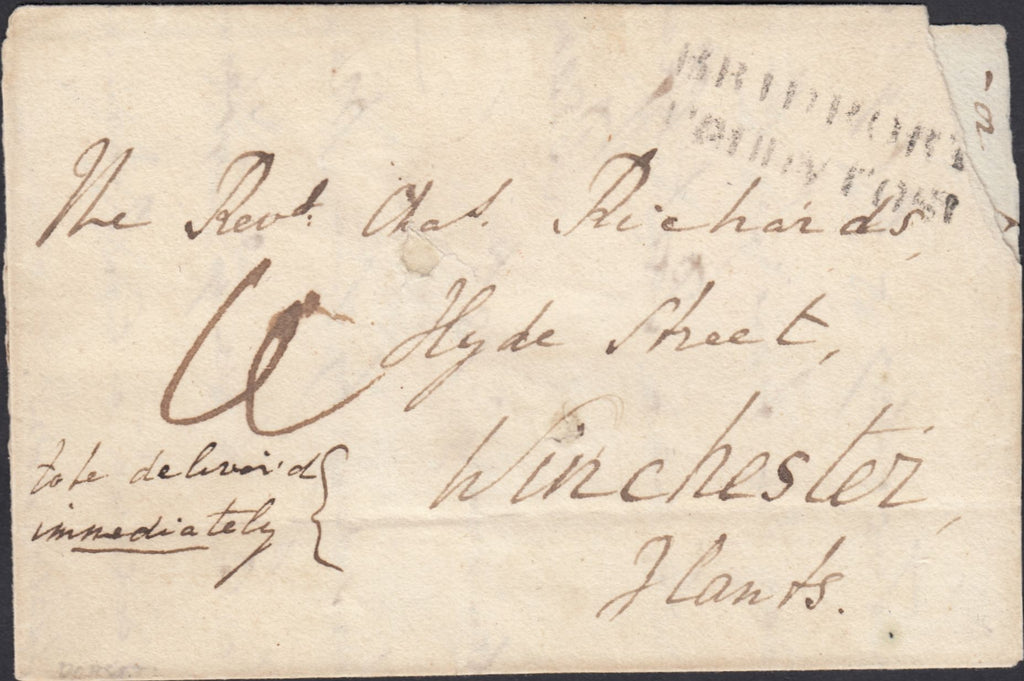 BRIDPORT
PENNY POST
The Revd. Chas. Richards,
Hyde Street,
Winchester,
Hants.
to be deliver'd
immediately
DORSET